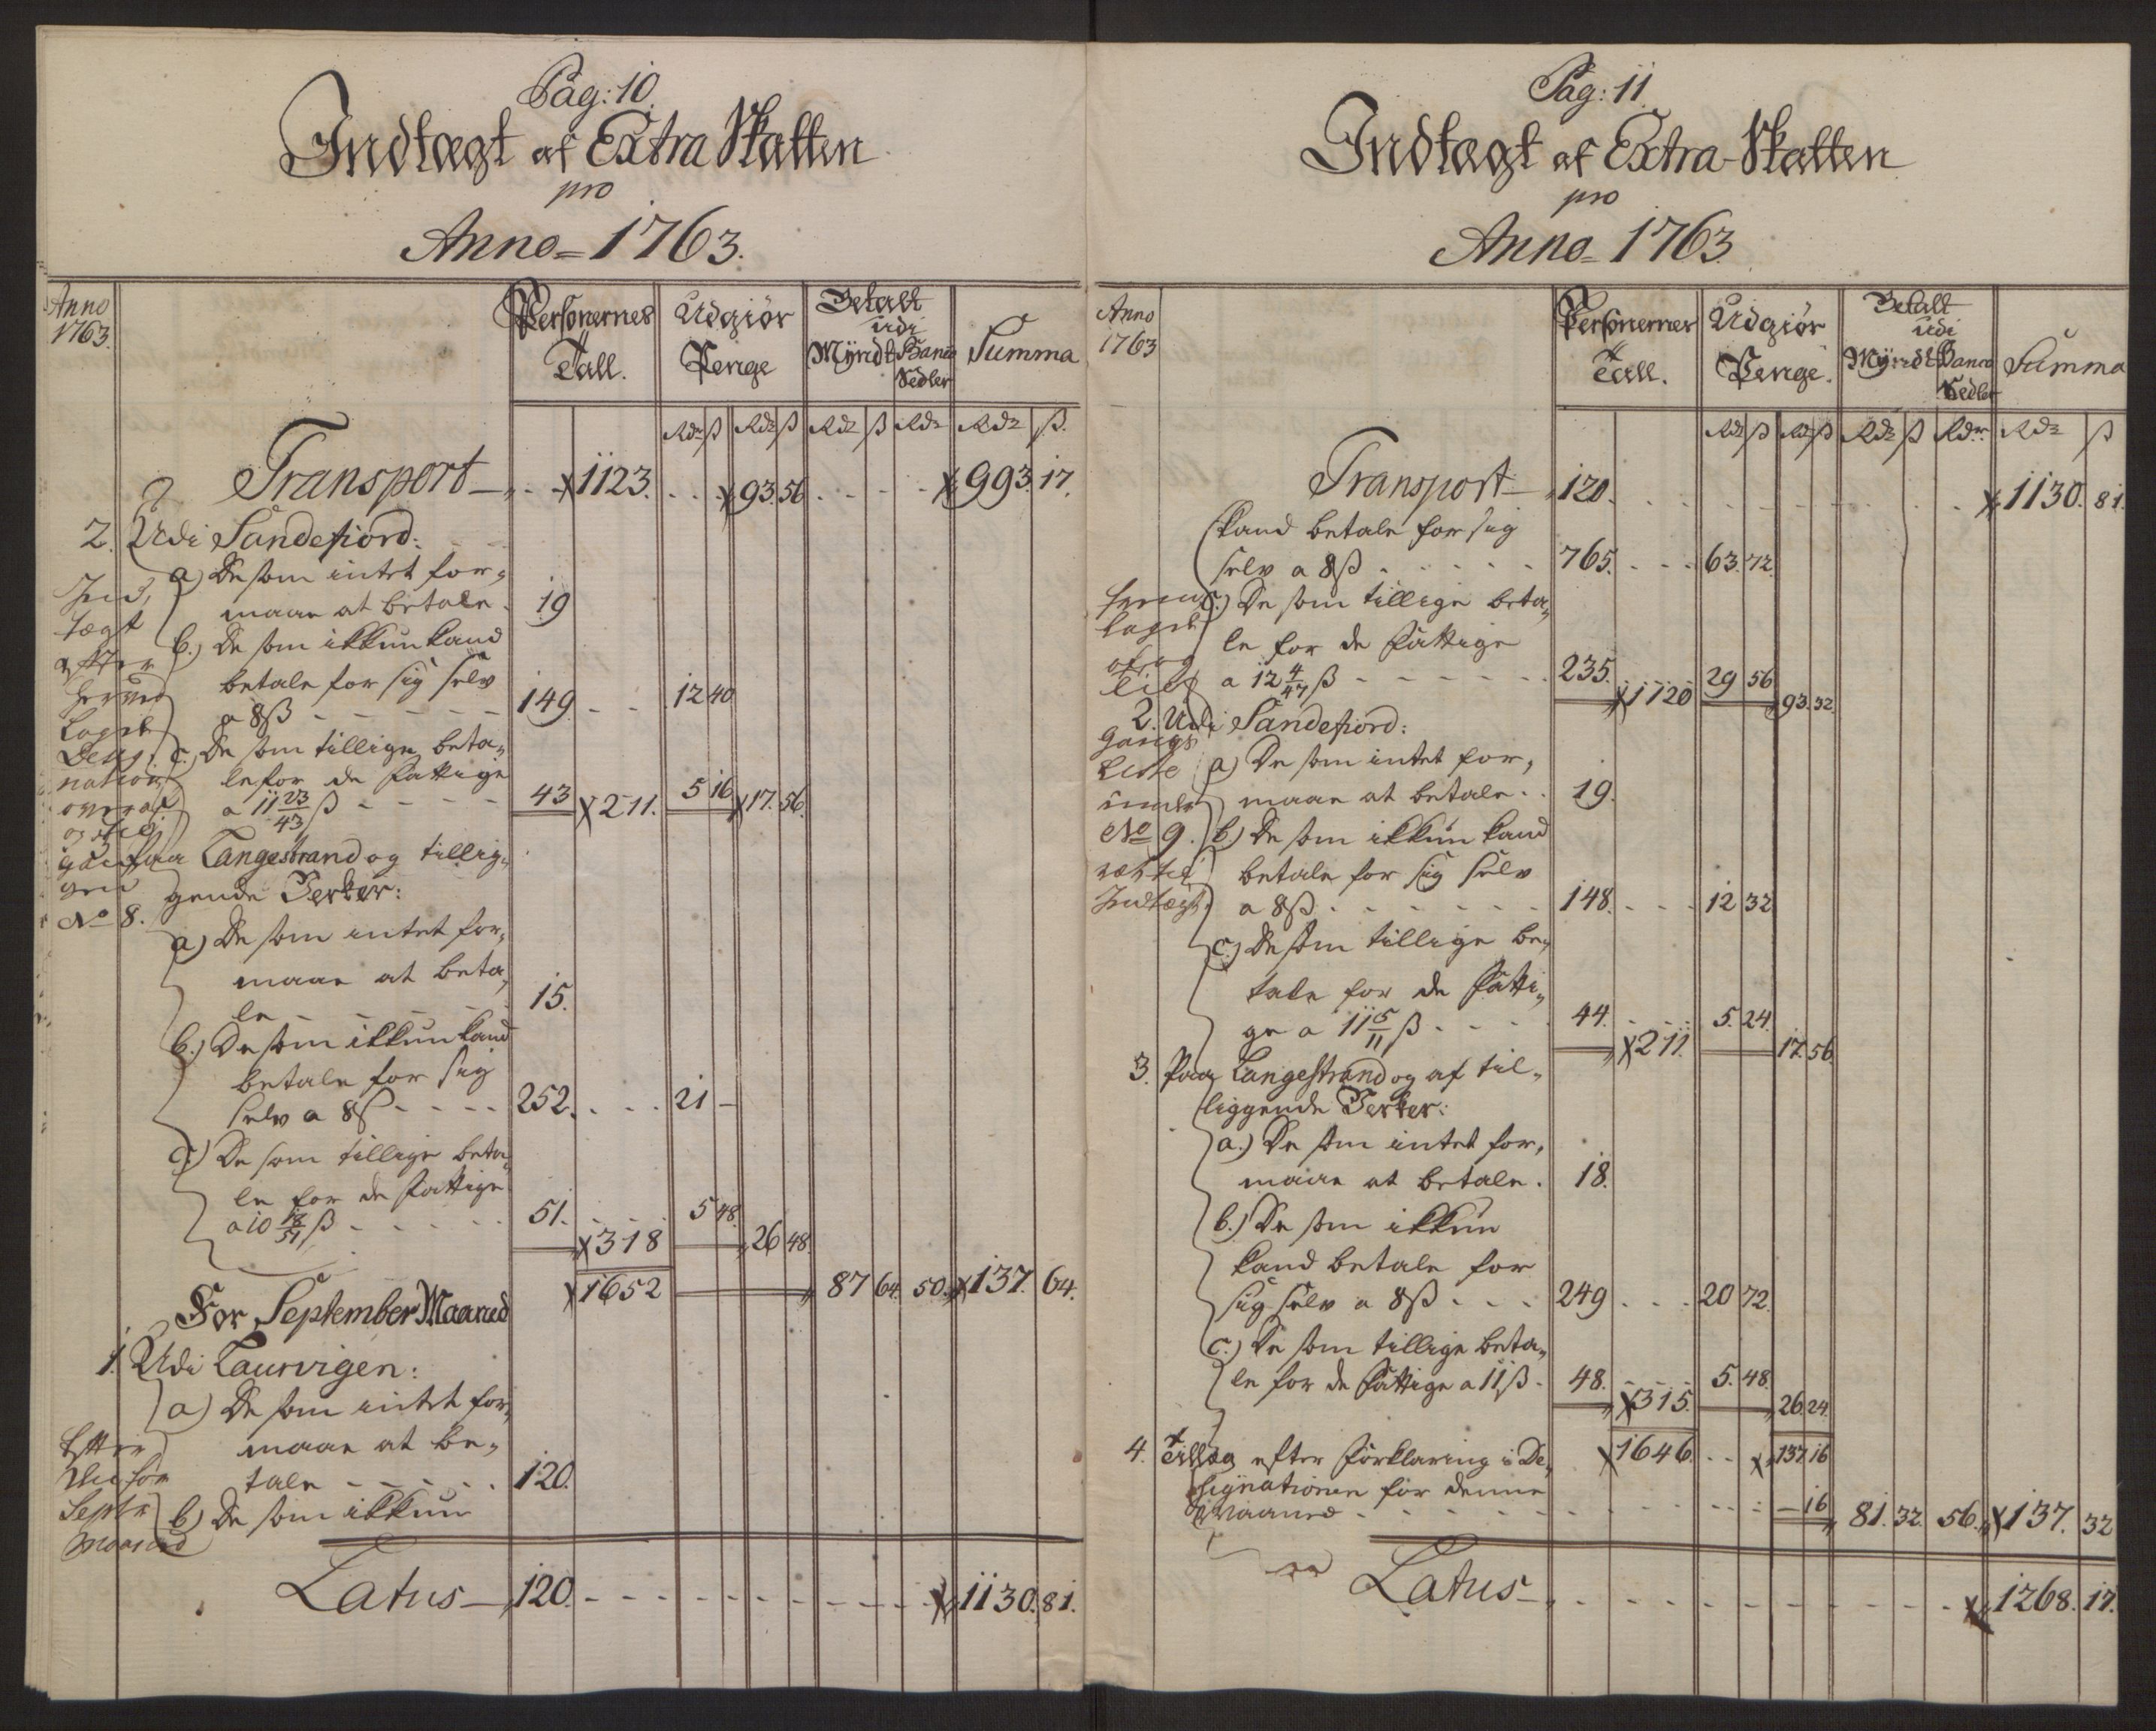 Pag: 10.
Indtægt af Extra Skatten
pro
Anno = 1763.
Anno
1763.
Personernes
Tall.
Udgiør
Penge
Betalt
udi
Myndt Banco
Sedler
Summa
Rdr ß Rdr ß Rdr ß Rdr Rdr ß.
Transport 1123. 93. 56 993. 17.
2. Udi Sandefiord:
a) De som intet for-
maar at betale 19
b.) De som ikkun kand
betale for sig selv
a 8 ß 149 12 40
c. De som tillige beta-
le for de fattige
a 11 23/43 ß 43 211. 5 16 17. 56.
Ind-
tægt
efter
herved
Lagde
Desig-
nation
over af
og til
gan-
gen
No 8.
paa Langestrand og tillig-
gende Verker:
a) De som intet for-
maar at beta-
le 15.
b.) De som ikkun kand
betale for sig
selv a 8 ß 252. 21 –
c.) De som tillige beta-
le for de fattige
a 10 18/51 ß 51. 318 5 48. 26 48.
1652 87 64. 50. 137. 64.
For September Maaned
1. Udi Laurvigen:
a) De som intet for-
maar at be-
tale 120.
b) De som ikkun
Efter
den for
Septr
Maaned
Latus 120. 1130. 81.
Pag: 11
Indtægt af Extra-Skatten
pro
Anno = 1763
Anno
1763
Personernes
Tall.
Udgiør
Penge.
Betalt
udi
Myndt Banco
Sedler
Summa
Rdr ß Rdr ß Rdr ß Rdr Rdr ß
Transport 120. 1130. 81.
kand betale for sig
selv a 8 ß 765. 63. 72.
c.) De som tillige beta-
le for de fattige
a 12 4/47 ß 235. 1120 29 56 93. 32
2. Udi Sandefiord:
a) De som intet for-
maar at betale. 19.
b) De som ikkun kand
betale for sig selv
a 8 ß 148. 12 32
c.) De som tillige be-
tale for de fatti-
ge a 11 5/11 ß 44. 211. 5. 24. 17. 56
lagde
af og
til
gangs
Liste
under
No 9.
til
Indtægt
3. paa Langestrand og af til-
liggende Verker:
a.) De som intet for-
maar at betale. 18.
b.) De som ikkun
kand betale for
sig selv a 8 ß 249 20 72.
c.) De som tillige beta-
le for de fattige a 11 ß. 48. 315. 5. 48. 26. 24.
1646. 137 16
4. Tillæg efter forklaring i De-
signationen for denne
Maaned – 16 81. 32. 56. 137. 32
Latus 1268. 17.